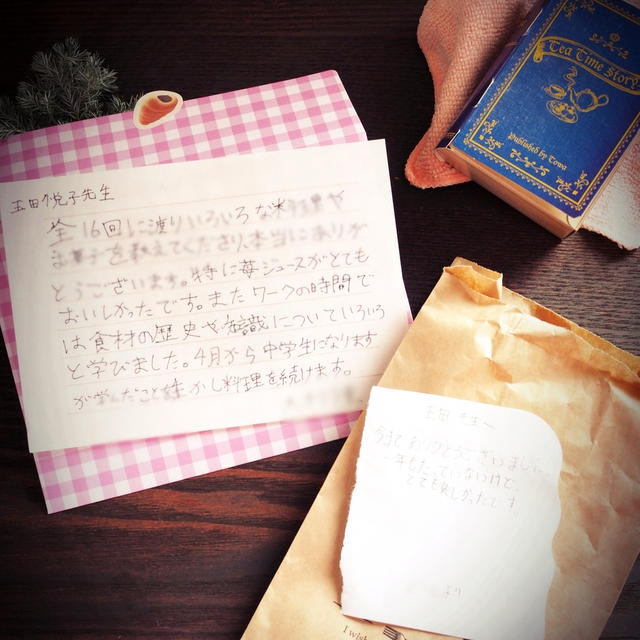 玉田悦子先生
全16回に渡りいろいろな米
お菓子を教えてくださり、本当にありが
とうございます。特に苺ジュースがとても
おいしかったです。またワークの時間で
は食材の歴史や知識についていろいろ
と学びました。4月から中学生になります
が学んだこと生かし料理を続けます。
Tea Time Story
published by Como
玉田 先生へ
今まで ありがとうございました
一年もたっていないけど、
とても楽しかったです
より
I wish